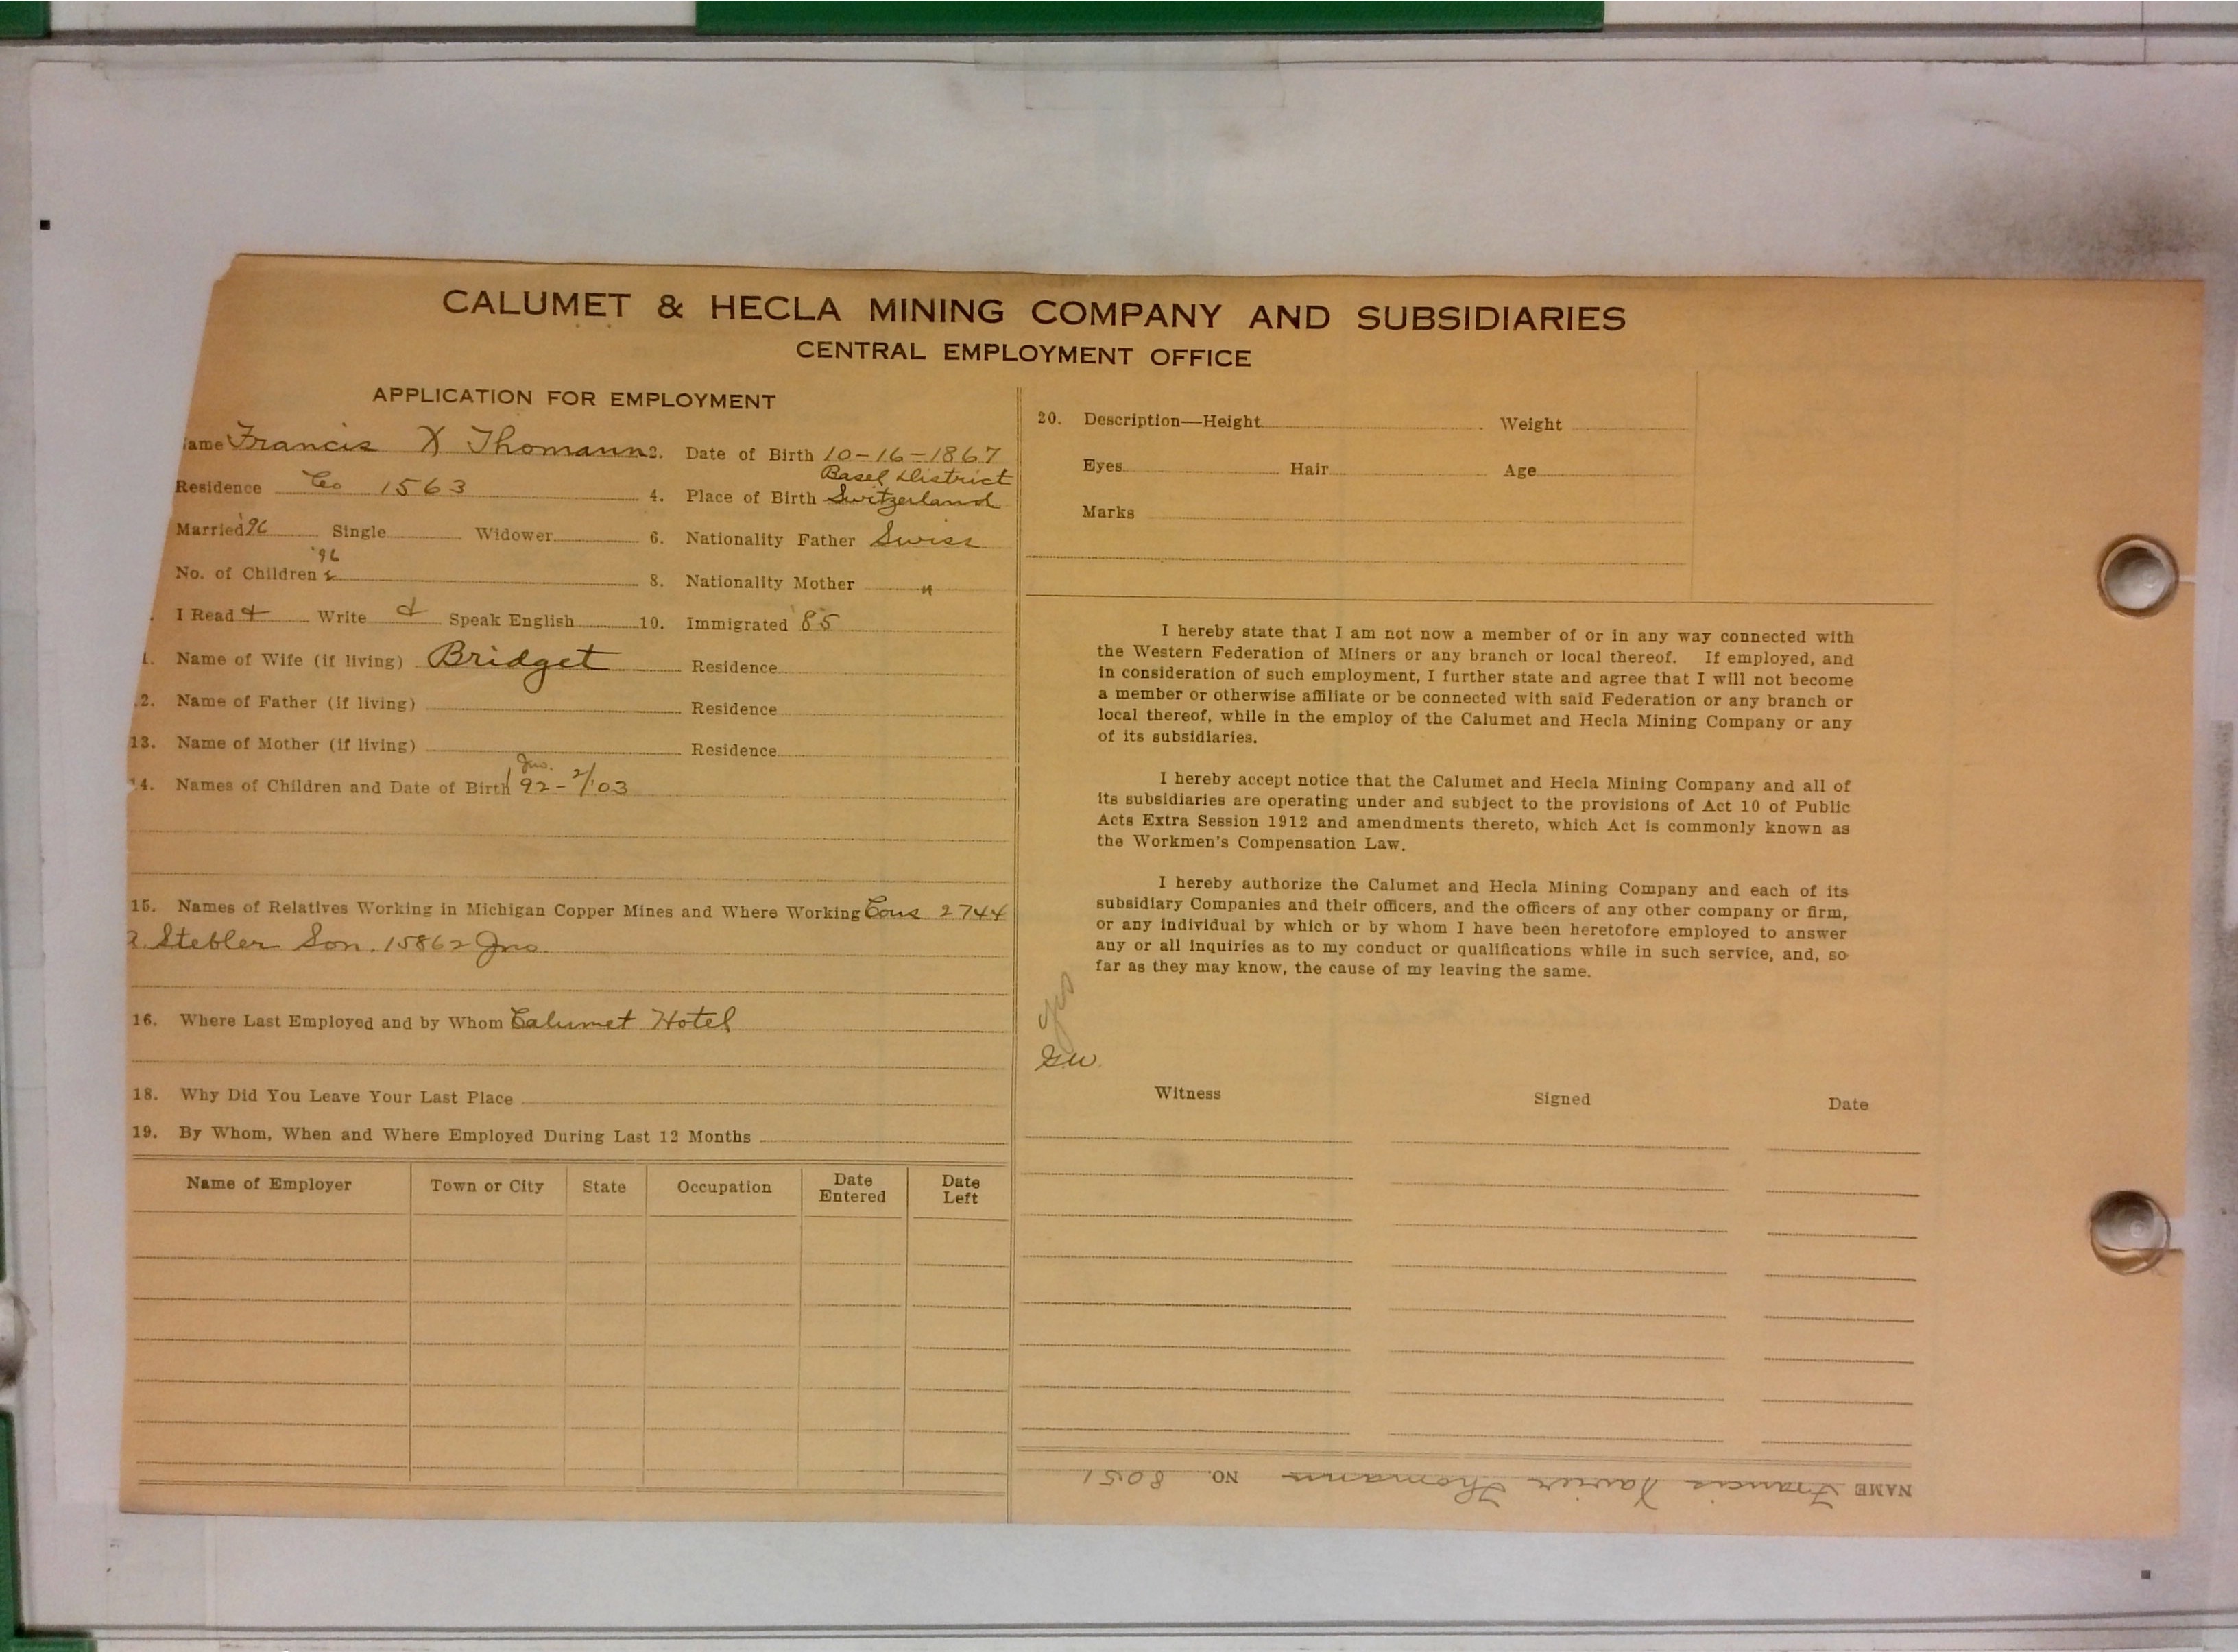 CALUMET & HECLA MINING COMPANY AND SUBSIDIARIES
CENTRAL EMPLOYMENT OFFICE
APPLICATION FOR EMPLOYMENT
ame Francis X Thomann 2. Date of Birth 10-16-1867
Basel District
Residence Co 1563 4. Place of Birth Switzerland
Married '96 Single Widower 6. Nationality Father Swiss
'96
No. of Children 2 8. Nationality Mother "
I Read & Write & Speak English 10. Immigrated '85
1. Name of Wife (if living) Bridget Residence
2. Name of Father (if living) Residence
13. Name of Mother (if living) Residence
Jno.
14. Names of Children and Date of Birth '92-2/'03
15. Names of Relatives Working in Michigan Copper Mines and Where Working Cous 2744
A. Stebler Son. 15862 Jno.
16. Where Last Employed and by Whom Calumet Hotel
18. Why Did You Leave Your Last Place
19. By Whom, When and Where Employed During Last 12 Months
Name of Employer Town or City State Occupation Date Entered Date Left
20. Description—Height Weight
Eyes Hair Age
Marks
I hereby state that I am not now a member of or in any way connected with
the Western Federation of Miners or any branch or local thereof. If employed, and
in consideration of such employment, I further state and agree that I will not become
a member or otherwise affiliate or be connected with said Federation or any branch or
local thereof, while in the employ of the Calumet and Hecla Mining Company or any
of its subsidiaries.
I hereby accept notice that the Calumet and Hecla Mining Company and all of
its subsidiaries are operating under and subject to the provisions of Act 10 of Public
Acts Extra Session 1912 and amendments thereto, which Act is commonly known as
the Workmen's Compensation Law.
I hereby authorize the Calumet and Hecla Mining Company and each of its
subsidiary Companies and their officers, and the officers of any other company or firm,
or any individual by which or by whom I have been heretofore employed to answer
any or all inquiries as to my conduct or qualifications while in such service, and, so
far as they may know, the cause of my leaving the same.
Witness Signed Date
NAME Francis Xavier Thomann NO. 8051